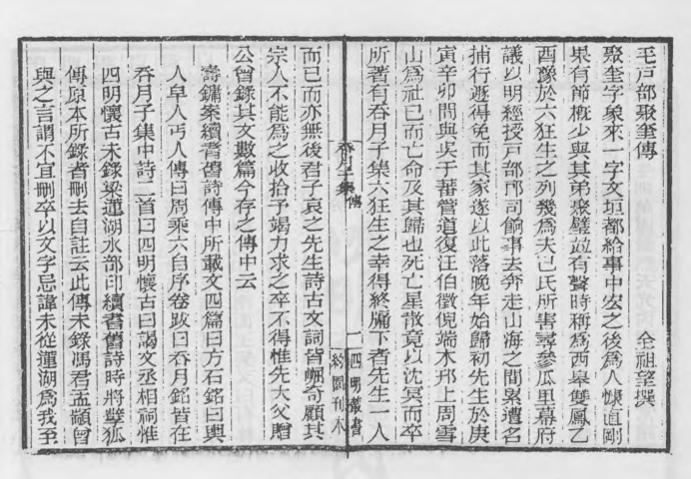 毛戸部聚奎傳
全祖望撰
聚奎字象來一字文垣都給事中宏之後爲人慷直剛
果有節槪少與其弟聚壁並有聲時稱爲西皋雙鳳乙
酉豫於六狂生之列幾爲夫己氏所害尋參瓜里幕府
議以明經授戸部郎司餉事去奔走山海之間累遭名
捕行遯得免而其家遂以此落晚年始歸初先生於庚
寅辛卯間與吳于蕃管道復汪伯徵倪端木邦上周雪
山爲社已而亡命及其歸也死亡星散竟以沈冥而卒
所著有吞月子集六狂生之幸得終牖下者先生一人
吞月子集
傳
一
四明叢書
約園刊本
而已而亦無後君子哀之先生詩古文詞皆崛奇顧其
宗人不能爲之收拾予竭力求之卒不得惟先大父贈
公曾錄其文數篇今存之傳中云
壽鏞案續耆舊詩傳中所載文四篇曰方石銘曰與
人皐人丐人傳曰周乘六自序卷跋曰吞月銘皆在
吞月子集中詩二首曰四明懷古曰謁文丞相祠惟
四明懷古未錄梁蓮湖水部印續耆舊詩時將孽狐
傳原本所錄者刪去自註云此傳未錄馮君孟顓曾
與之言謂不宜刪卒以文字忌諱未從蓮湖爲我至